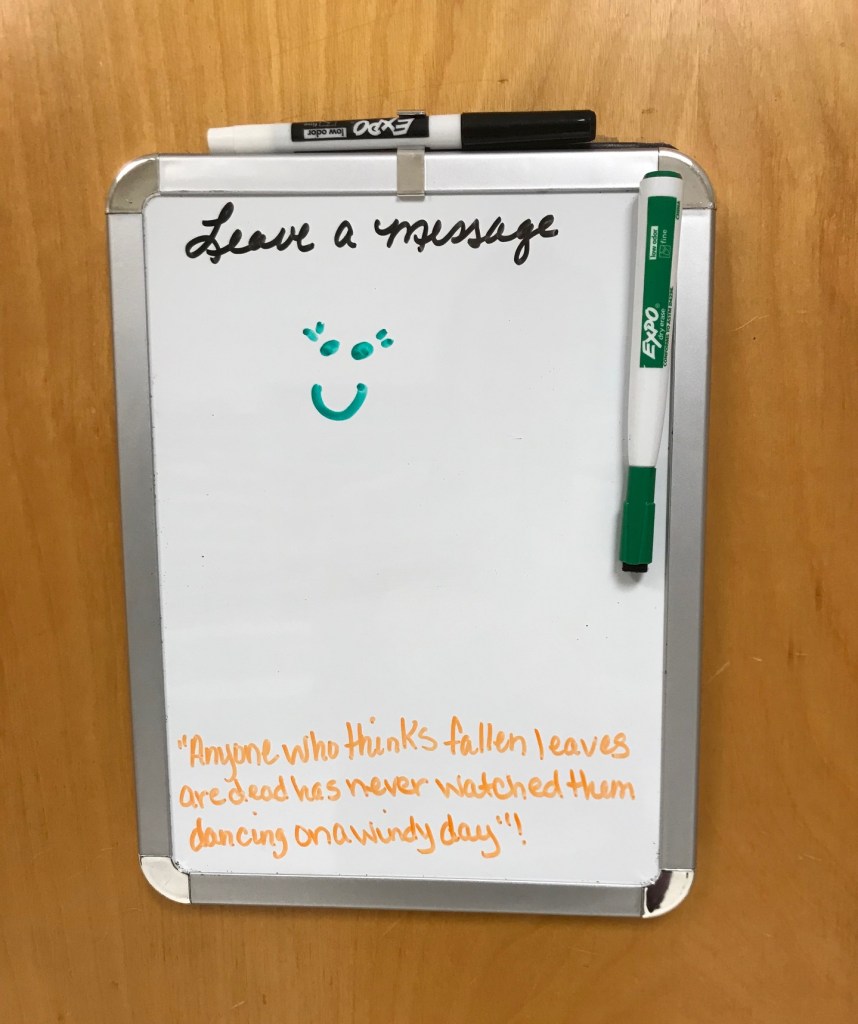 low odor EXPO
Leave a message
low odor fine
EXPO dry erase
"Anyone who thinks fallen leaves
are dead has never watched them
dancing on a windy day"!